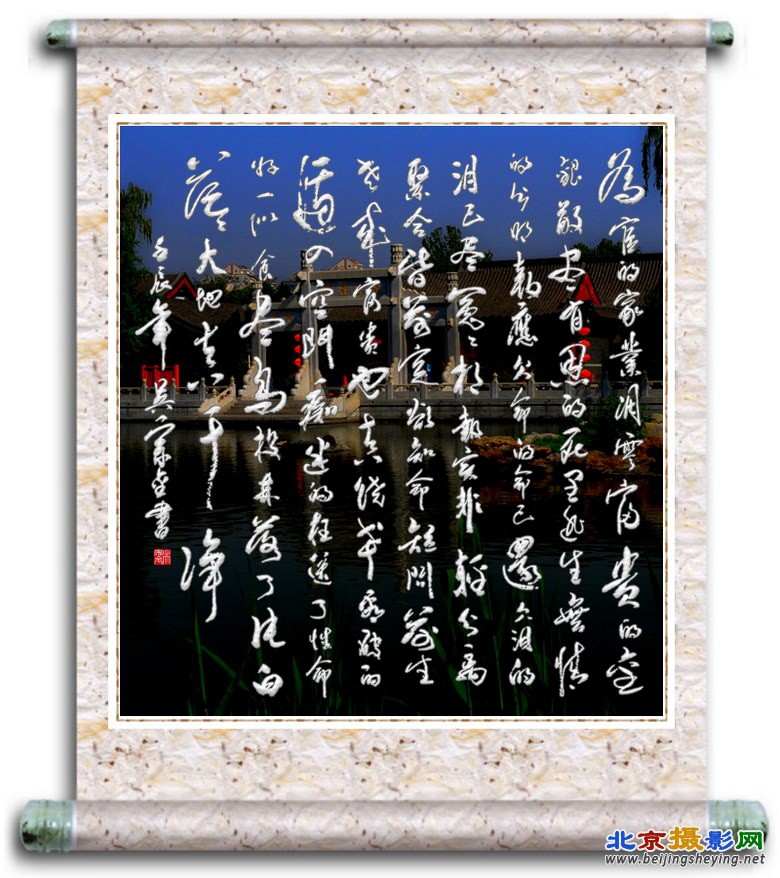 為官的家業凋零富貴的金
銀散盡有恩的死里逃生無情
的分明報應欠命的命已還欠泪的
泪已尽冤冤相報实非輕分离
聚合皆前定欲知命短問前生
老来富贵也真侥幸看破的
遁入空門痴迷的枉送了性命
好一似食尽鳥投林落了片白
茫茫大地真干净
壬辰年吴宗書
北京摄影网
www.beijingsheying.net